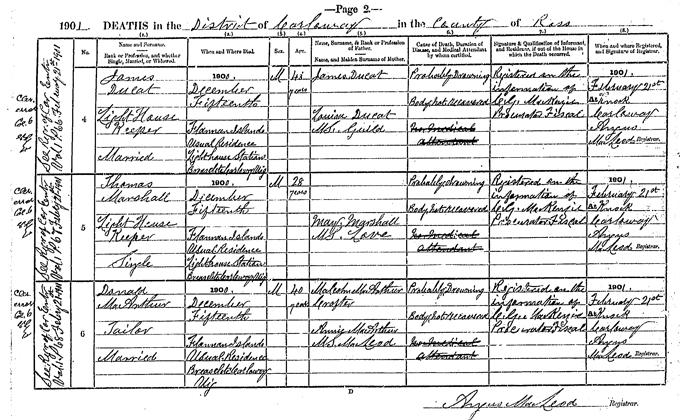 —Page 2.—
1901 DEATHS in the District of Carloway in the County of Ross
(1.) (2.) (3.) (4.) (5.) (6.) (7.) (8.)
No.
Name and Surname.
Rank or Profession, and whether Single, Married, or Widowed.
When and Where Died.
Sex.
Age.
Name, Surname, & Rank or Profession of Father.
Name, and Maiden Surname of Mother.
Cause of Death, Duration of Disease, and Medical Attendant by whom certified.
Signature & Qualification of Informant, and Residence, if out of the House in which the Death occurred.
When and where Registered, and Signature of Registrar.
4
James
Ducat
Light House
Keeper
Married
1900.
December
Fifteenth
Flannan Islands
Usual Residence
Lighthouse Station
Breasclete Carloway Uig
M
43
years
James Ducat
Louisa Ducat
M.S. Guild
Probably Drowning
Body not Recovered
No Medical
attendant
Registered on the
information of
Mackenzie
Procurator Fiscal
1901
February 21st
At Knock
Carloway
Angus
MacLeod Registrar.
5
Thomas
Marshall
Light House
Keeper
Single
1900.
December
Fifteenth
Flannan Islands
Usual Residence
Lighthouse Station
Breasclete Carloway Uig
M
28
years
Mary Marshall
M.S. Love
Probably drowning
Body not Recovered
No Medical
attendant
Registered on the
information of
MacKenzie
Procurator Fiscal
1901
February 21st
At Knock
Carloway
Angus
McLeod Registrar.
6
Donald
MacArthur
Tailor
Married
1900.
December
Fifteenth
Flannan Islands
Usual Residence
Breasclete Carloway
Uig
M
40
years
Malcolm MacArthur
Crofter
Annie MacArthur
M.S. MacLeod
Probably Drowning
Body not Recovered
No Medical
attendant
Registered on the
information of
Mackenzie
Procurator Fiscal
1901
February 21st
At Knock
Carloway
Angus
MacLeod Registrar.
D
Angus MacLeod Registrar.